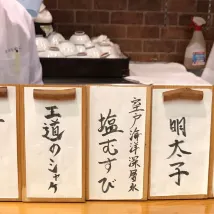 明太子
室戸海洋深層水
塩むすび
工道のシャケ